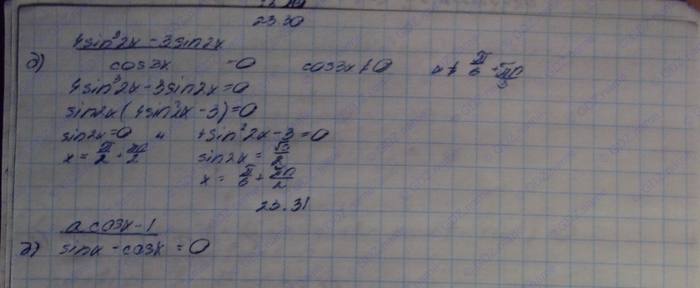 23.30
4sin³2x - 3sin2x
б) cos3x = 0 cos3x ≠ 0 x ≠ π/6 + πn/3
4sin³2x - 3sin2x = 0
sin2x(4sin²2x - 3) = 0
sin2x = 0 и 4sin²2x - 3 = 0
x = π/2 + πn/2 sin2x =
x = π/6 + πn/2
23.31
a cosx - 1
а) sinx - cosx = 0